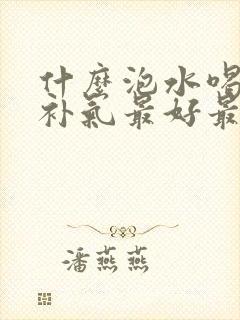 什麼泡水喝
补氣最好最
潘燕燕